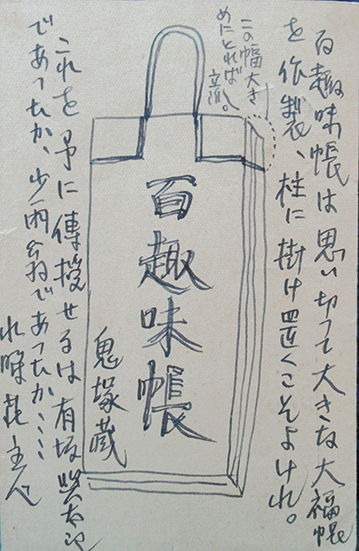 百趣味帳は思い切つて大きな大福帳
を作製、柱に掛け置くこそよけれ。
この幅大き
めにとれば
立派。
百趣味帳
鬼塚蔵
これを予に傳授せるは有坂與太郎
であつたか、少雨翁であつたか……
主人